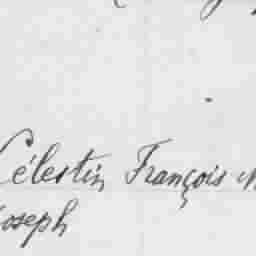 Célestin François
Joseph